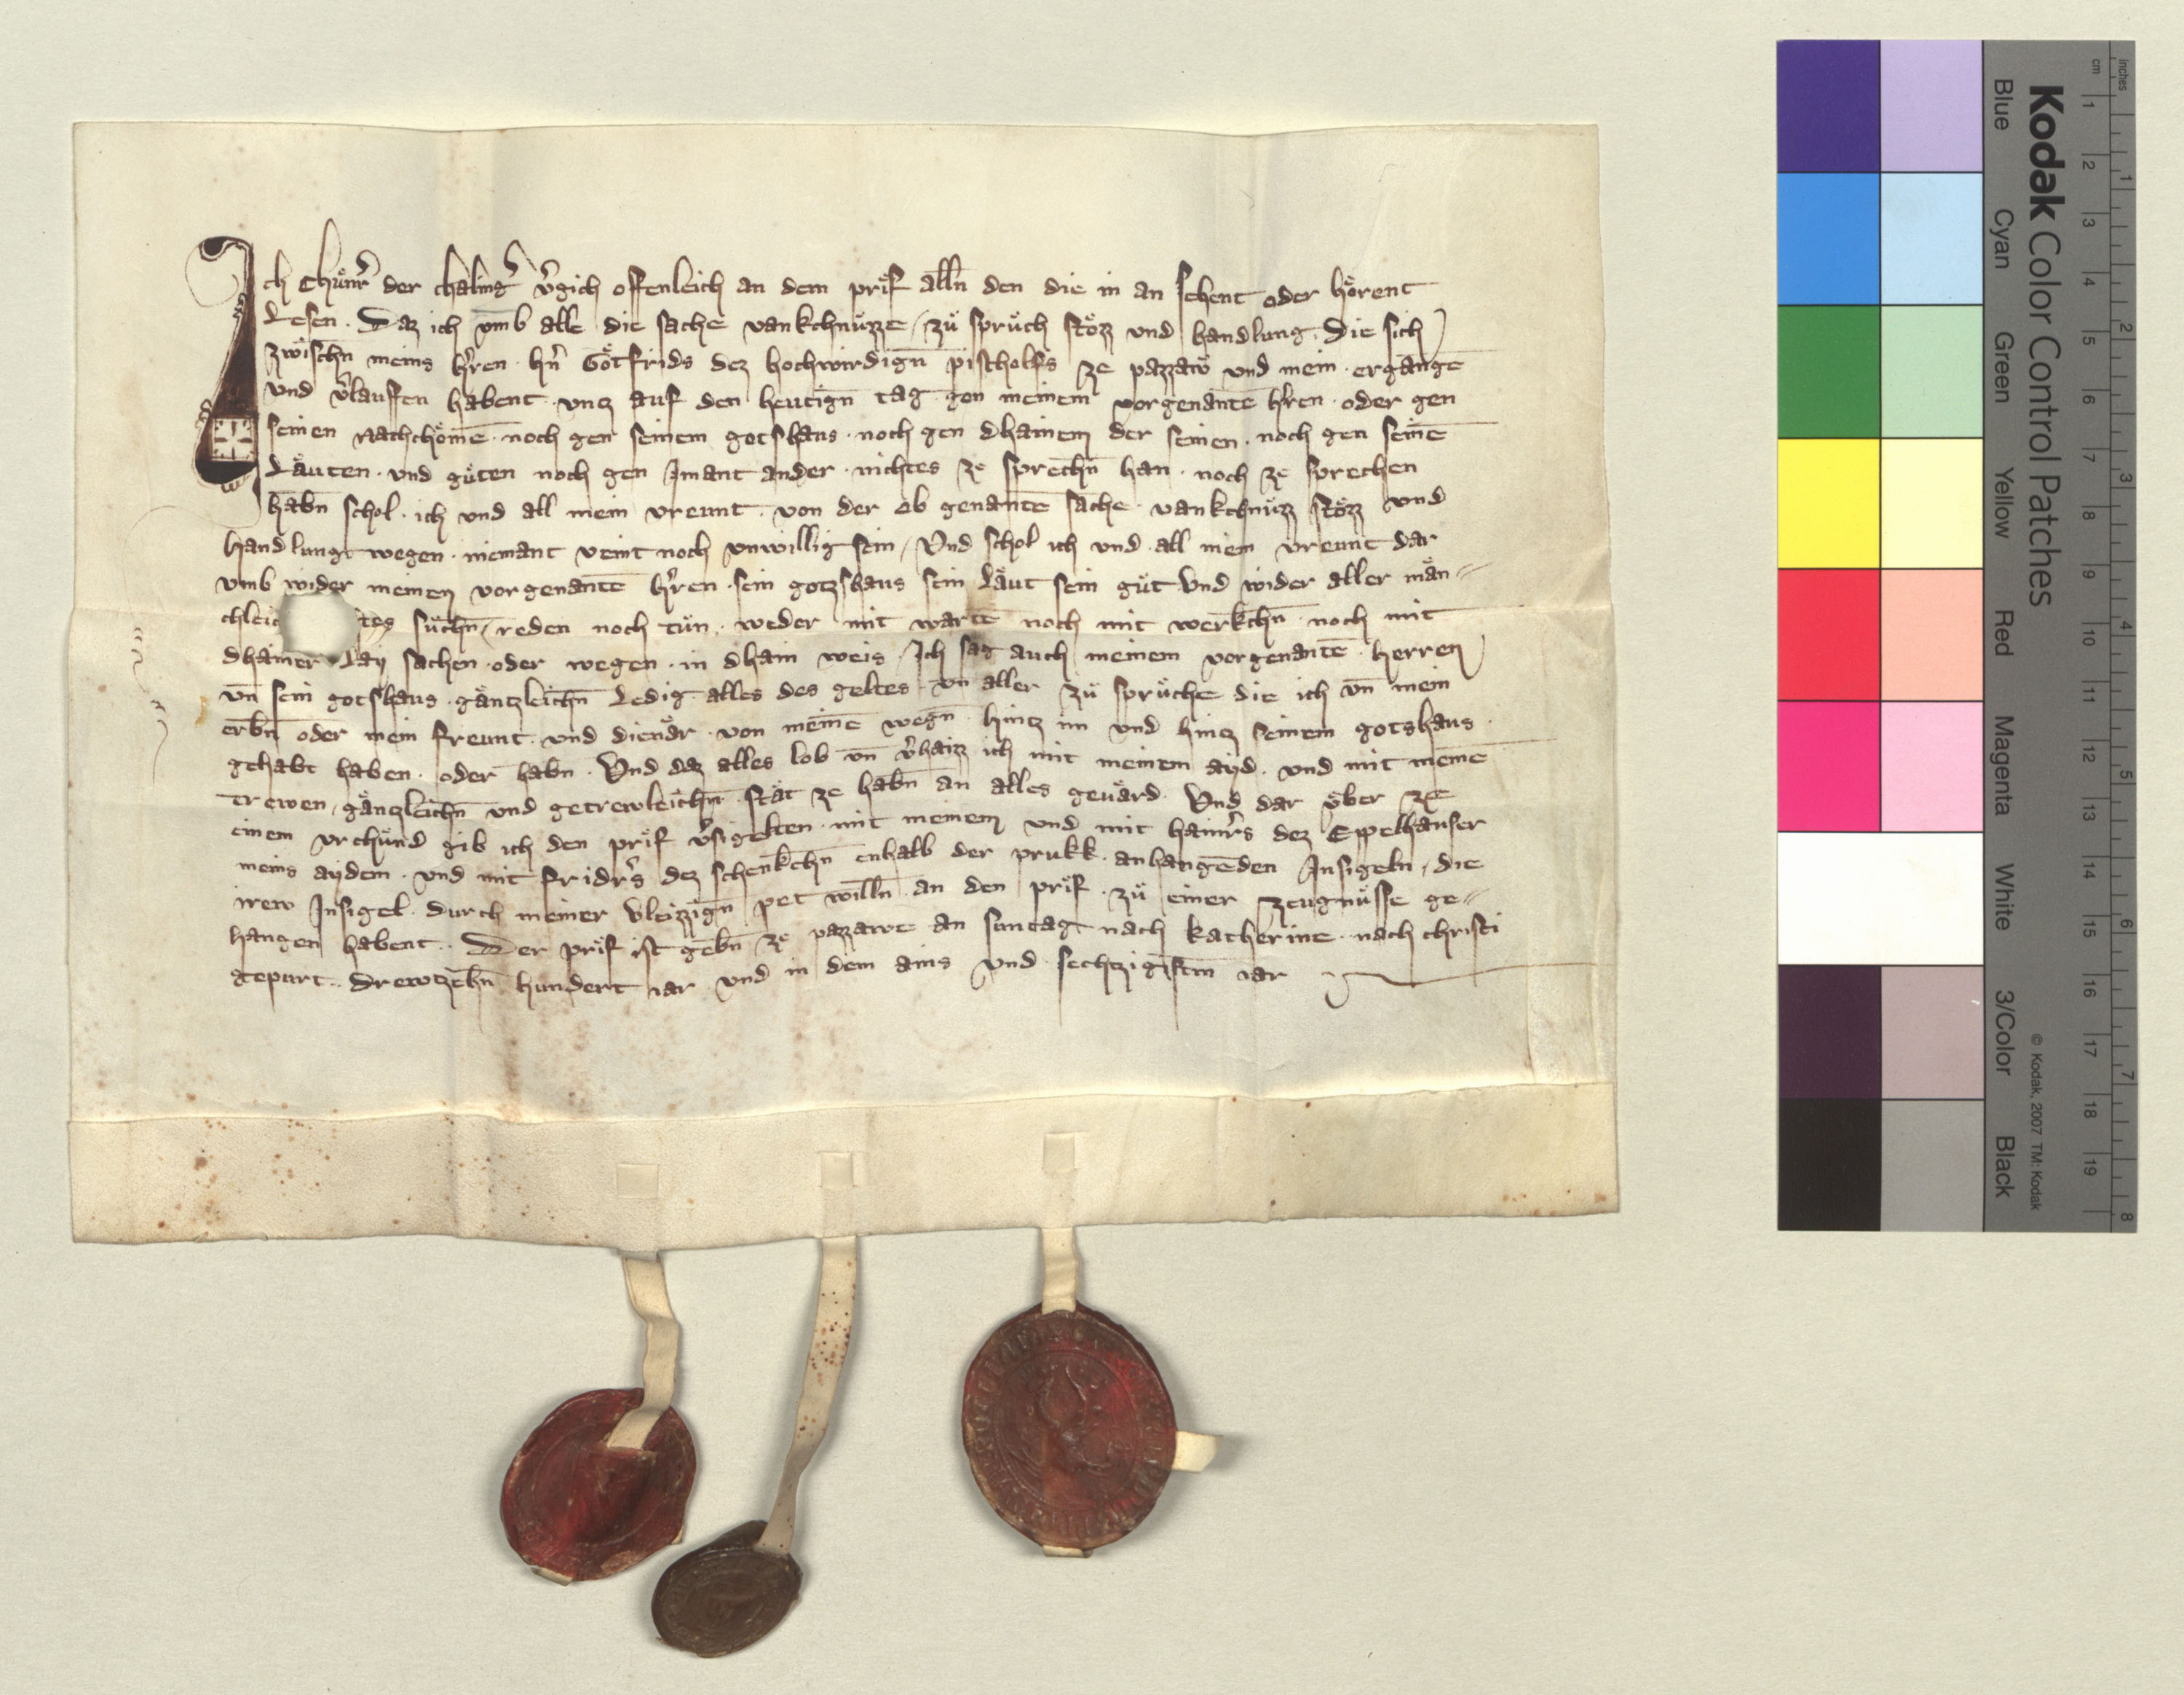 Ich Chunr̄ der chalinḡ v̄gich offenleich an dem prif alln̄ den die in an sehent oder hoͤrent
Lesen . Daz ich vmb alle die sache vankchnuͤzze / zuͤ spruͤch stoͤzz vnd handlung . Die sich
zwischn̄ meins hr̄ren . hn̄ Goͤtfrids dez hochwirdign̄ pischolfs ze pazzaw vnd mein . ergangē
vnd v̄lauffen habent . vncz auf den heutign̄ tag gen meinem vorgenantē hr̄ren . oder gen
seinen nachchoͤmē . noch gen seinem gotshaus . noch gen dhainem der seinen . noch gen seinē
Laͤuten . vnd guͤten noch gen Imant ander . nichtes ze sprechn̄ han . noch ze sprechen
habn̄ schol . ich vnd all mein vreunt . von der ob genantē sache . vankchnuͤzz stoͤzz vnd
handlung wegen . niemant veint noch vnwillig sein / Vnd schol ich vnd . all mein vreunt dar
vmb wider meinen vorgenantē hr̄ren . sein gotzshaus sein Laͤut sein guͤt Vnd wider aller maͤn=
chleich tes suͤchn̄ / reden noch tuͤn . weder mit wartē noch mit werkchn̄ . noch mit
dhainer Lay sachen . oder wegen . in dhain weis / Ich sag auch meinem vorgenantē . herren
vn̄ sein gotshaus . gaͤntzleichn̄ Ledig . alles des geltes . vn̄ aller zuͤ spruͤche die ich vn̄ mein
erbn̄ oder mein freunt . vnd dienaͤr . von meinē wegn̄ . hintz im vnd hintz seinem gotshaus .
gehabt haben . oder habn̄ . Vnd daz alles lob vn̄ v̄haizz ich mit meinem ayd . vnd mit meinē
trewen / gaͤntzleichn̄ vnd getrewleichn̄ staͤt ze habn̄ an alles geuaͤrd . Vnd dar uͤber ze
einem vrchuͤnd gib ich den prif v̄sigelten . mit meinem vnd mit hainr̄s dez Eppelhauser
meins aydem . vnd mit fridr̄s dez schenkchn̄ enhalb der prukk . anhangēden Insigeln / die
irew Insigel . durch meiner vleizzign̄ pet willn̄ . an den prif . zuͤ einer zeugnuͤsse ge=
hangen habent . . Der prif ist gebn̄ ze pazzawe an suntag nach katherine . nach christi
gepurt . . drewtzehn̄ hundert iar vnd in dem ains vnd sechtzigistm̄ iar
Kodak Color Control Patches
Blue Cyan Green Yellow Red Magenta White 3/Color Black
© Kodak, 2007 TM: Kodak
cm 1 2 3 4 5 6 7 8 9 10 11 12 13 14 15 16 17 18 19
inches 1 2 3 4 5 6 7 8